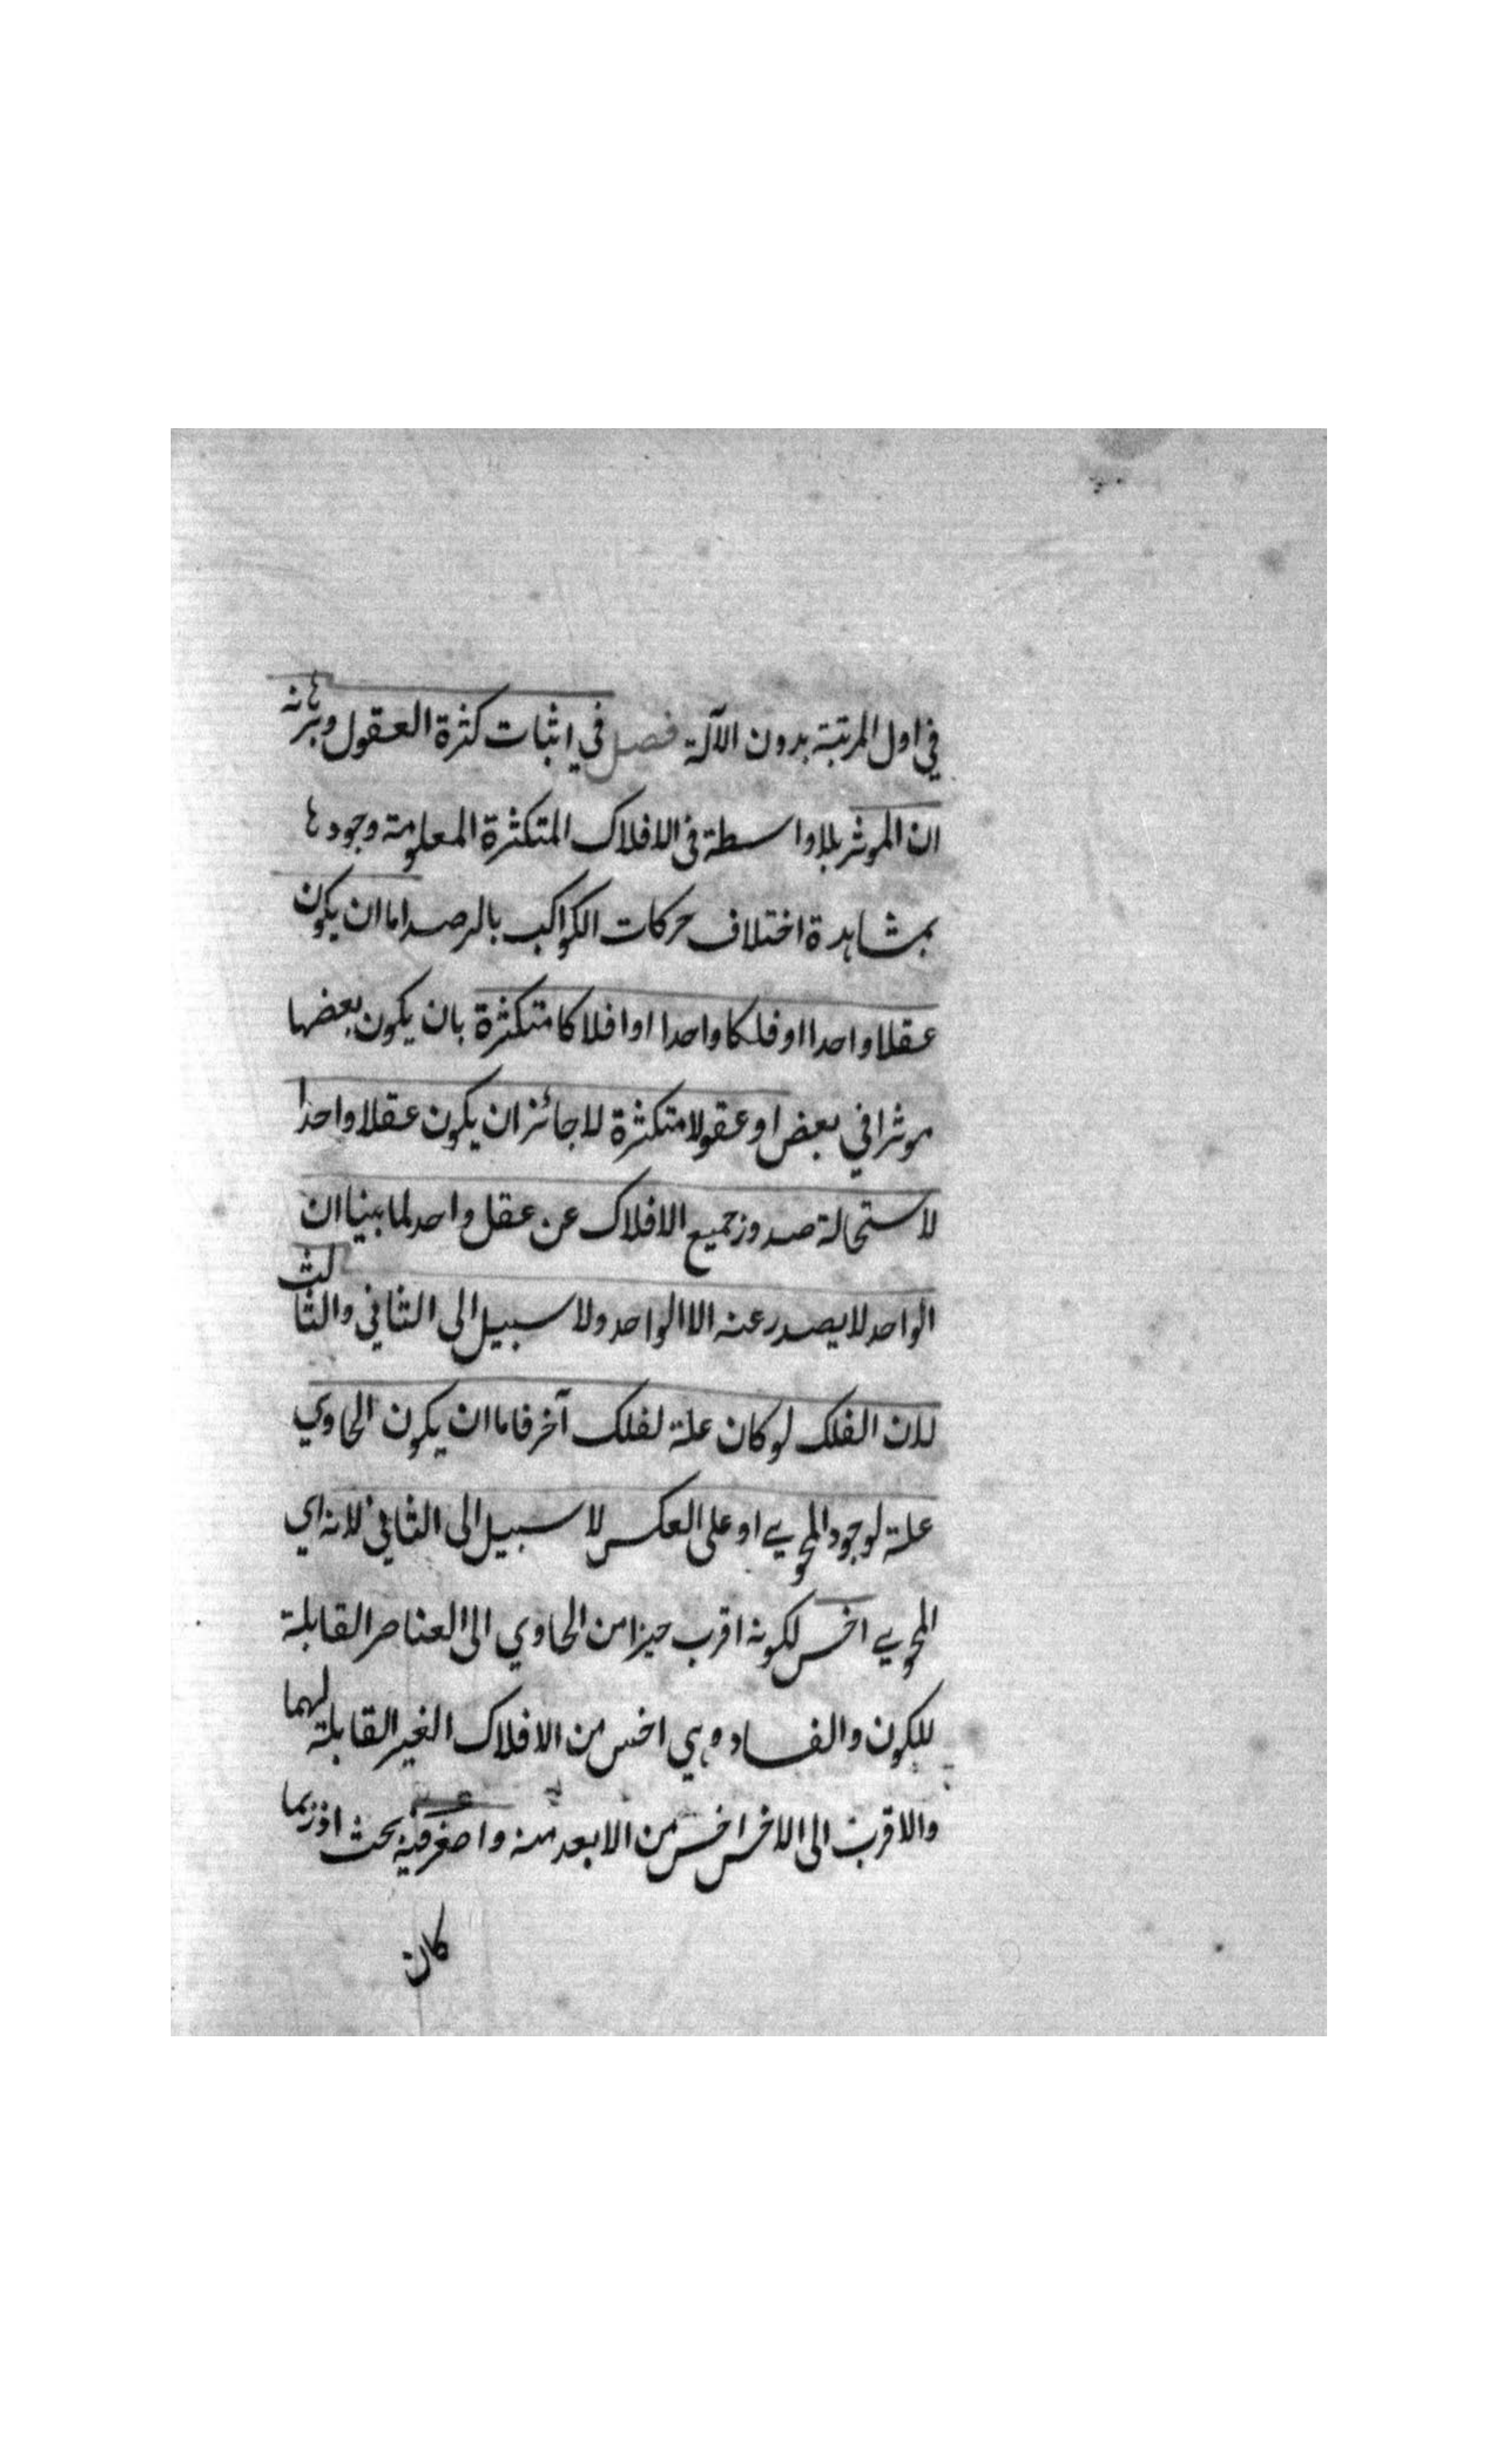 في اول المرتبة بدون الآلة فصل في اثبات كثرة العقول وبرهانه
ان الموثر بلا واسطة في الافلاك المتكثرة المعلومة وجودها
بمشاهدة اختلاف حركات الكواكب بالرصد اما ان يكون
عقلا واحدا او فلكا واحدا او افلاكا متكثرة بان يكون بعضها
موثرا في بعض او عقولا متكثرة لا جائز ان يكون عقلا واحدا
لاستحالة صدور جميع الافلاك عن عقل واحد لما بينا ان
الواحد لا يصدر عنه الا الواحد ولا سبيل الى الثاني والثالث
لان الفلك لو كان علة لفلك آخر فاما ان يكون الحاوي
علة لوجود المحوي او على العكس لا سبيل الى الثاني لانه اي
المحوي اخس لكونه اقرب حيزا من الحاوي الى العناصر القابلة
للكون والفساد وهي اخس من الافلاك الغير القابلة لهما
والاقرب الى الاخس اخس من الابعد منه واصغر فيه بحث اذ ربما
كان